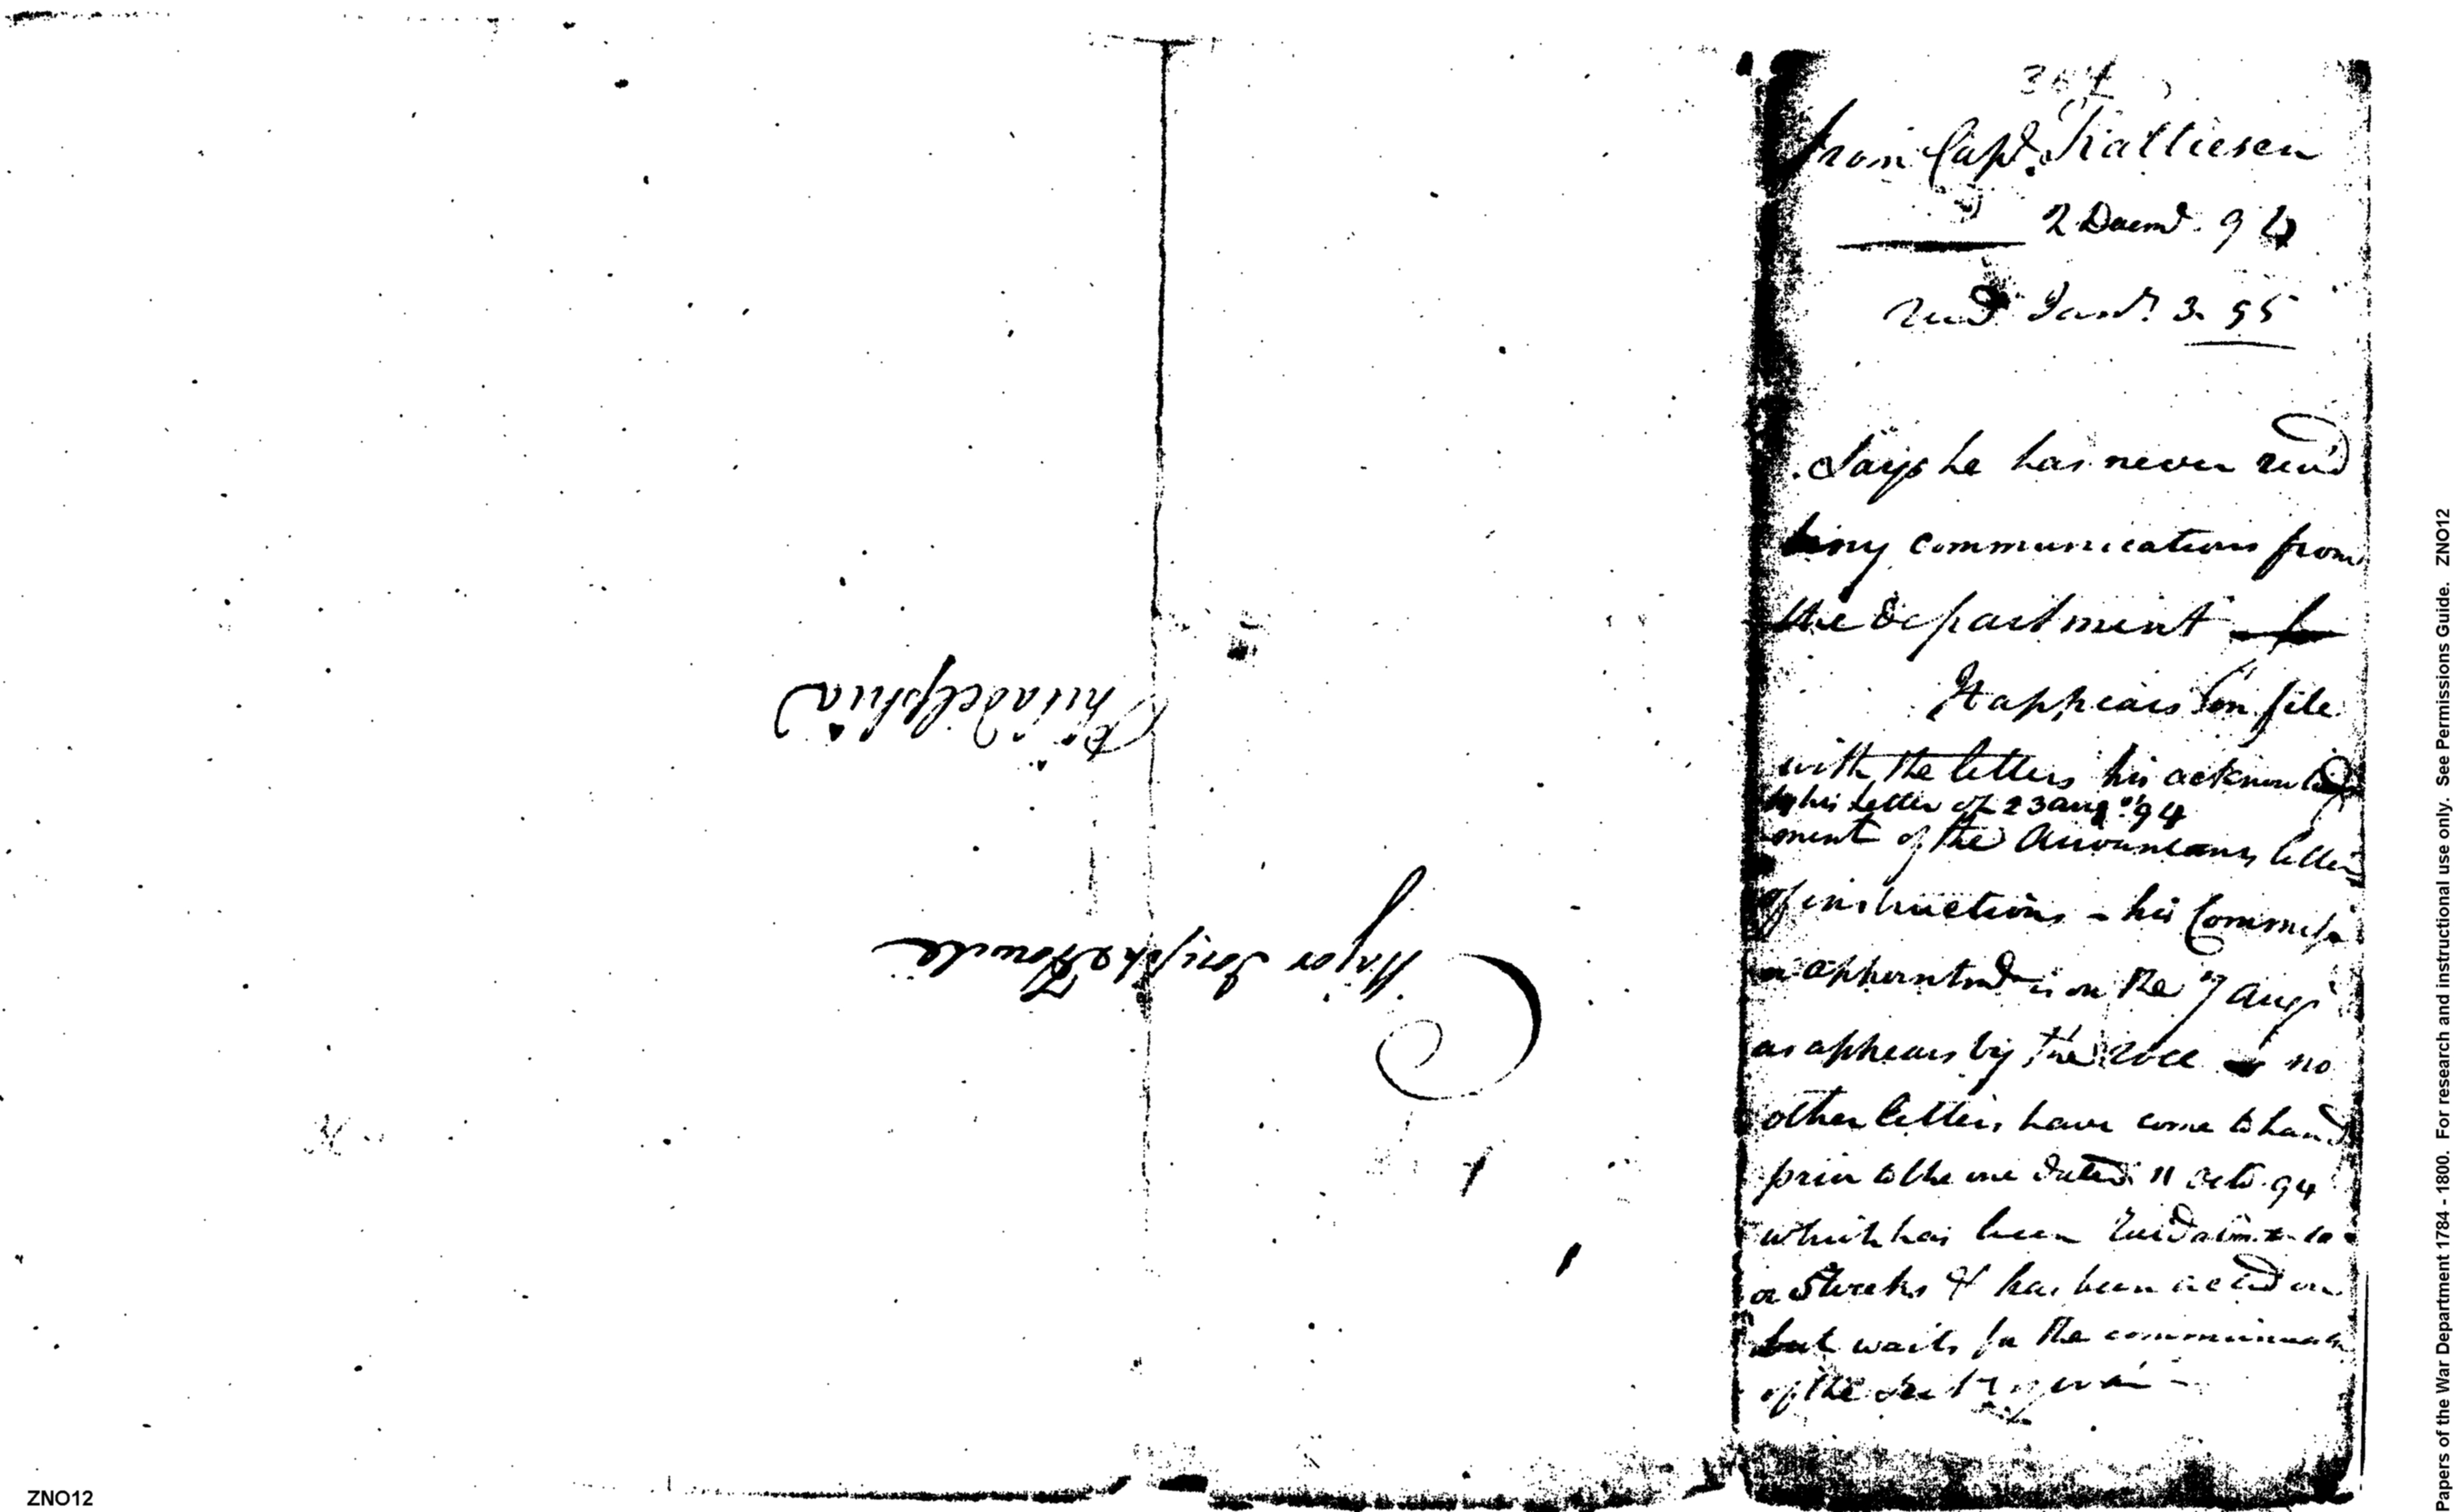 from Capt. Kalteisen
2 Decemr. 94
recd Jany. 3. 95
Says he has never recd
any communications from
the Department
It appears on file
with the letters his acknowledg
by his letter of 23 augt 94
ment of the Accountants letter
of instructions - his Commiss
appointmt is on the 7 augt
as appears by the roll no
other letters have come to hand
prior to the one dated 11 octo. 94
which has been recd
or 5 weeks & has been acted on
but waits for the
of the
Major Joseph Howell
Philadelphia
ZNO12
Papers of the War Department 1784 - 1800. For research and instructional use only. See Permissions Guide. ZNO12